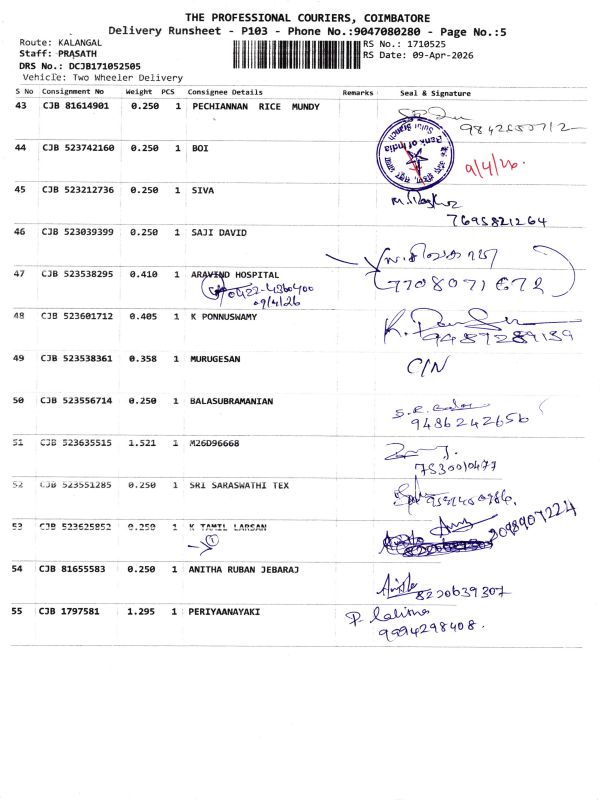 THE PROFESSIONAL COURIERS, COIMBATORE
Delivery Runsheet - P103 - Phone No.:9047080280 - Page No.:5
Route: KALANGAL
RS No.: 1710525
Staff: PRASATH
RS Date: 09-Apr-2026
DRS No.: DCJB171052505
Vehicle: Two Wheeler Delivery
S No Consignment No Weight PCS Consignee Details Remarks Seal & Signature
43 CJB 81614901 0.250 1 PECHIANNAN RICE MUNDY
44 CJB 523742160 0.250 1 BOI
Bank of India
Sulur Branch
9/4/26.
45 CJB 523212736 0.250 1 SIVA
7695821264
46 CJB 523039399 0.250 1 SAJI DAVID
47 CJB 523538295 0.410 1 ARAVIND HOSPITAL
7708071672
0422-4360400
09/4/26
48 CJB 523601712 0.405 1 K PONNUSWAMY
9489289139
49 CJB 523538361 0.358 1 MURUGESAN
C/N
50 CJB 523556714 0.250 1 BALASUBRAMANIAN
9486242656
51 CJB 523635515 1.521 1 M26D96668
7530010477
52 CJB 523551285 0.250 1 SRI SARASWATHI TEX
53 CJB 523625852 0.250 1 K TAMIL LARSAN
1
54 CJB 81655583 0.250 1 ANITHA RUBAN JEBARAJ
8220639307
55 CJB 1797581 1.295 1 PERIYAANAYAKI
P. Lalitha
9994298408.